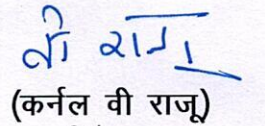 वी राजू
(कर्नल वी राजू)